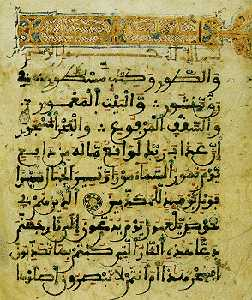 والطور وكتب مسطور في
رق منشور والبيت المعمور
والسقف المرفوع والبحر المسجور
إن عذاب ربك لواقع ما له من دا
فع يوم تمور السماء مورا وتسير الجبال سيرا
فويل يومئذ للمكذبين الذين هم في
خوض يلعبون يوم يدعون إلى نار جهنم
دعا هذه النار التي كنتم بها تكذبون
أفسحر هذا أم أنتم لا تبصرون اصلوها